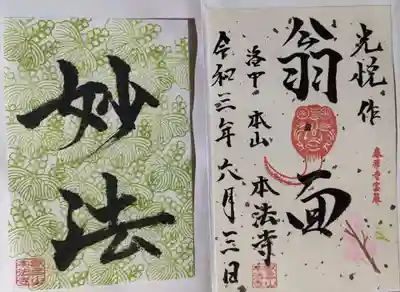 妙法
光悦作
翁面
洛中 本山 本法寺
令和三年六月三日